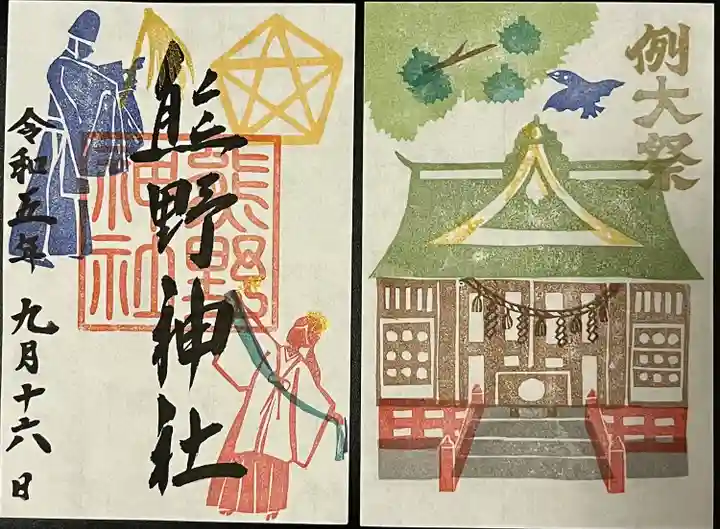 熊野神社
熊野
神社
令和五年 九月十六日
例大祭